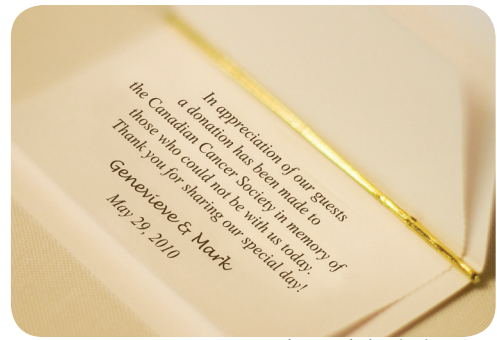 In appreciation of our guests
a donation has been made to
the Canadian Cancer Society in memory of
those who could not be with us today.
Thank you for sharing our special day!
Genevieve & Mark
May 29, 2010